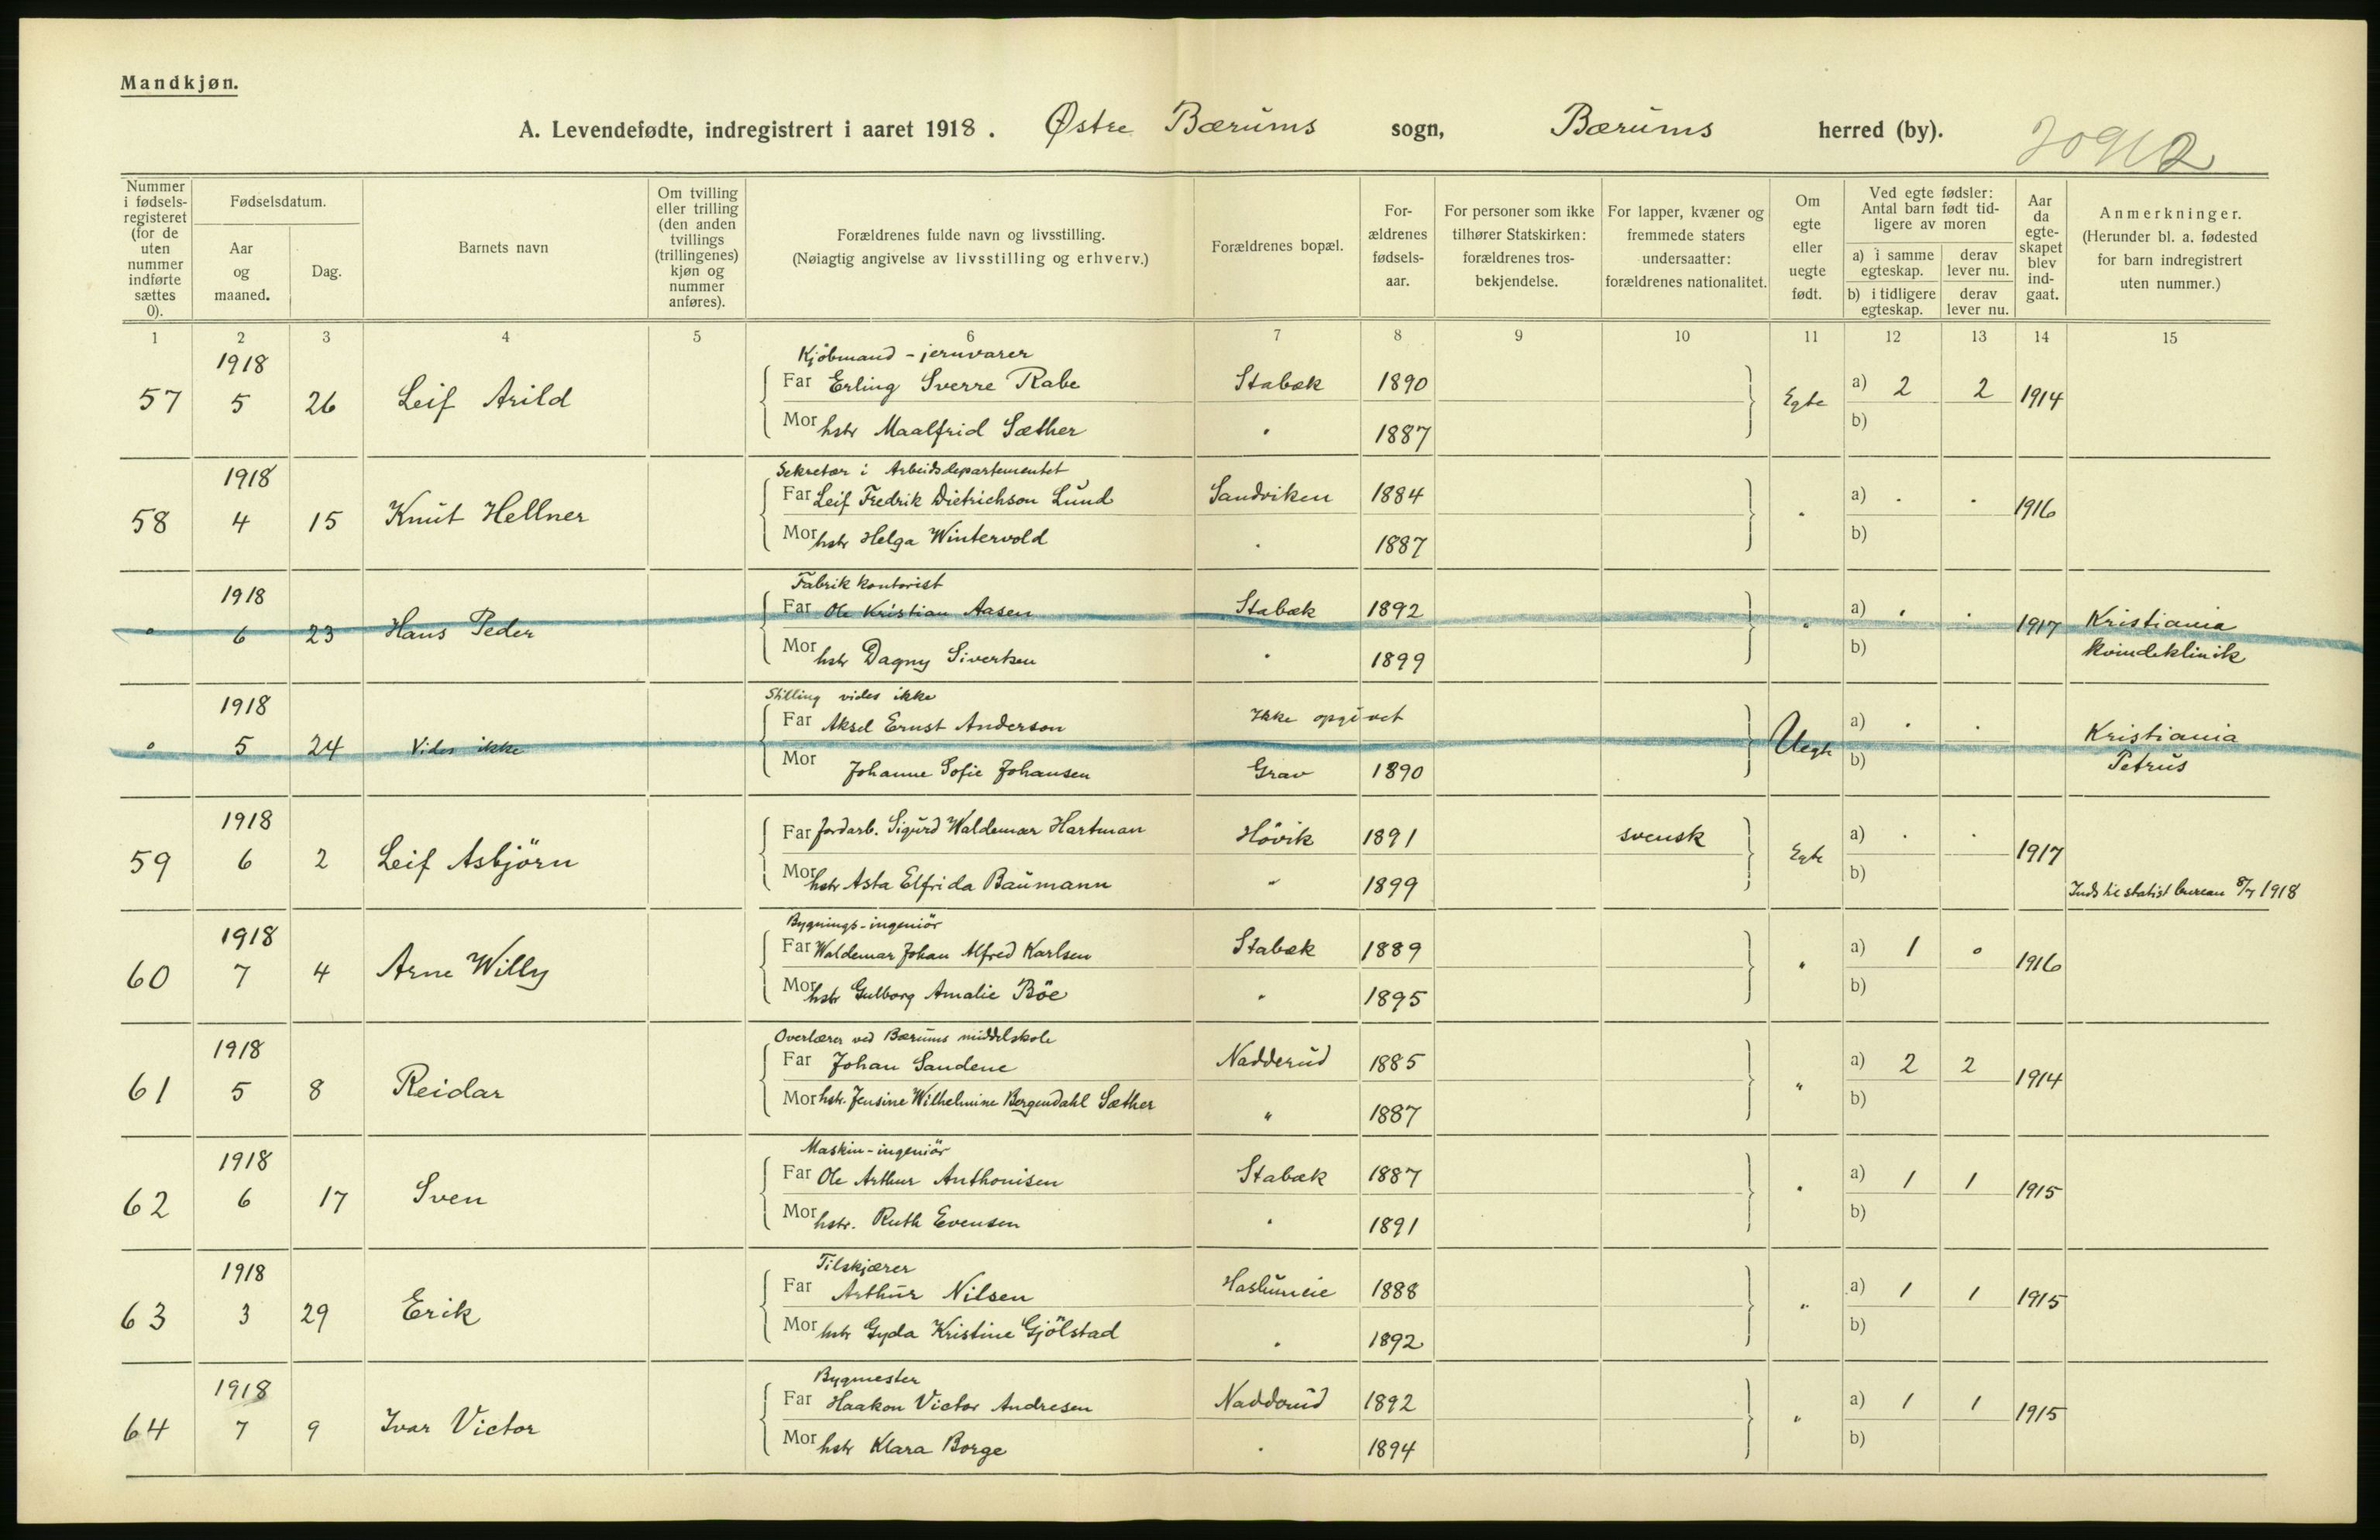 Mandkjøn.
A. Levendefødte, indregistrert i aaret 1918. Østre Bærums sogn, Bærums herred (by).
Nummer i fødselsregisteret (for de uten nummer indførte sættes 0).
Fødselsdatum.
Aar og maaned.
Dag.
Barnets navn
Om tvilling eller trilling (den anden tvillings (trillingenes) kjøn og nummer anføres).
Forældrenes fulde navn og livsstilling.
(Nøiagtig angivelse av livsstilling og erhverv.)
Forældrenes bopæl.
Forældrenes fødselsaar.
For personer som ikke tilhører Statskirken: forældrenes trosbekjendelse.
For lapper, kvæner og fremmede staters undersaatter: forældrenes nationalitet.
Om egte eller uegte født.
Ved egte fødsler: Antal barn født tidligere av moren
a) i samme egteskap. derav lever nu.
b) i tidligere egteskap. derav lever nu.
Aar da egteskapet blev indgaat.
Anmerkninger.
(Herunder bl. a. fødested for barn indregistrert uten nummer.)
1 2 3 4 5 6 7 8 9 10 11 12 13 14 15
1918 Kjöbmand - jernvarer
57 5 26 Leif Arild Far Erling Sverre Rabe Stabæk 1890 Egte a) 2 2 1914
Mor hstr Maalfrid Sæther " 1887 b)
1918 Sekretær i Arbeidsdepartementet
58 4 15 Knut Hellner Far Leif Fredrik Dietrichson Lund Sandviken 1884 " a) . . 1916
Mor hstr Helga Wintervold " 1887 b)
1918 Fabrikkontorist
0 6 23 Hans Peder Far Ole Kristian Aasen Stabæk 1892 " a) . . 1917 Kristiania
Mor hstr Dagny Sivertsen " 1899 b) Kvindeklinik
1918 Stilling vides ikke
0 5 24 Vides ikke Far Aksel Ernst Anderson Ikke opgivet Uegte a) . . Kristiania
Mor Johanne Sofie Johansen Grav 1890 b) Petrus
1918
59 6 2 Leif Asbjörn Far Jordarb. Sigurd Waldemar Hartman Hövik 1891 svensk Egte a) . . 1917
Mor hstr Asta Elfrida Baumann " 1899 b) Inds til statist bureau 8/7 1918
1918 Bygnings-ingeniör
60 7 4 Arne Willy Far Waldemar Johan Alfred Karlsen Stabæk 1889 " a) 1 0 1916
Mor hstr Gulborg Amalie Böe " 1895 b)
1918 Overlærer ved Bærums middelskole
61 5 8 Reidar Far Johan Sandene Nadderud 1885 " a) 2 2 1914
Mor hstr. Jensine Wilhelmine Bergendahl Sæther " 1887 b)
1918 Maskin-ingeniör
62 6 17 Sven Far Ole Arthur Anthonisen Stabæk 1887 " a) 1 1 1915
Mor hstr. Ruth Evensen " 1891 b)
1918 Tilskjærer
63 3 29 Erik Far Arthur Nilsen Haslumeie 1888 " a) 1 1 1915
Mor hstr Gyda Kristine Gjölstad " 1892 b)
1918 Bygmester
64 7 9 Ivar Victor Far Haakon Victor Andresen Nadderud 1892 " a) 1 1 1915
Mor hstr Klara Borge " 1894 b)